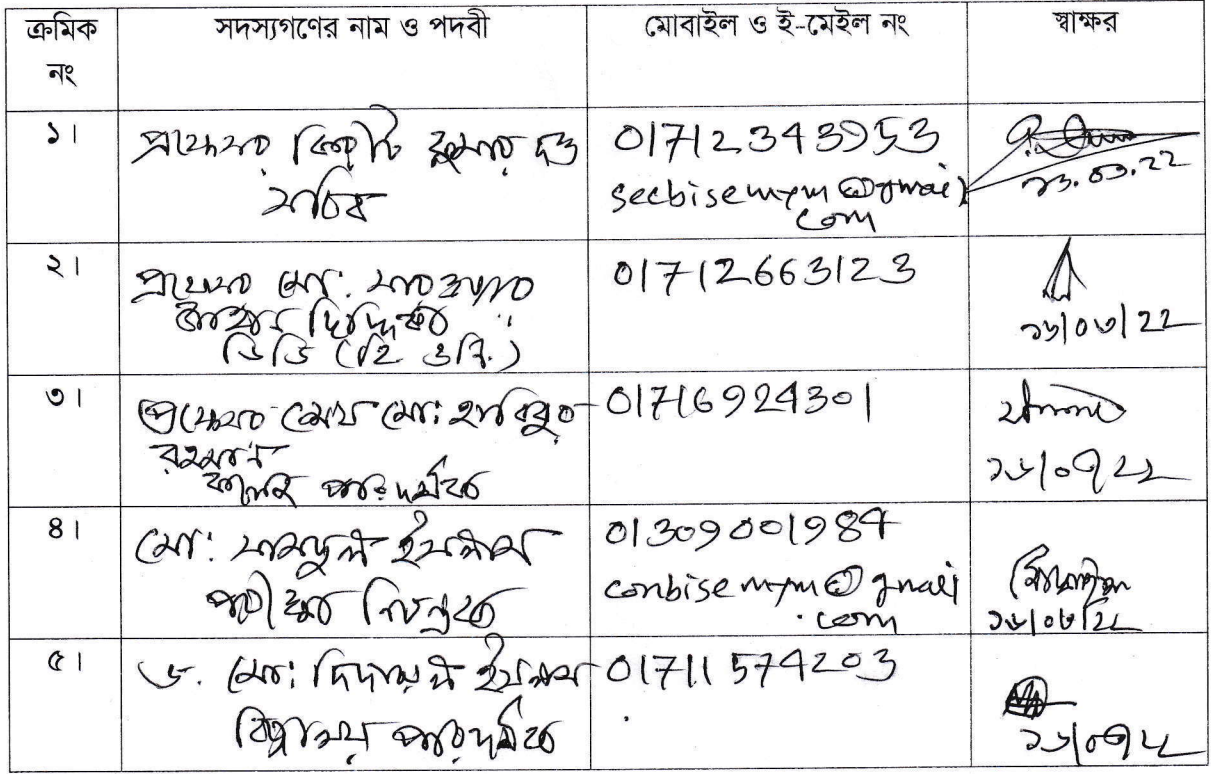 ক্রমিক নং
সদস্যগণের নাম ও পদবী
মোবাইল ও ই-মেইল নং
স্বাক্ষর
১।
প্রফেসর কিরীট কুমার দত্ত
সচিব
01712343953
secbisemym@gmail
com
২।
প্রফেসর মো:
ডিডি (হি ও নি.)
01712663123
৩।
প্রফেসর শেখ মো: হাবিবুর
রহমান
কলেজ পরিদর্শক
01716924301
৪।
মো: সামছুল ইসলাম
পরীক্ষা নিয়ন্ত্রক
01309001984
conbisemym@gmail
.com
৫।
ড. মো: দিদারুল ইসলাম
বিদ্যালয় পরিদর্শক
01711574203